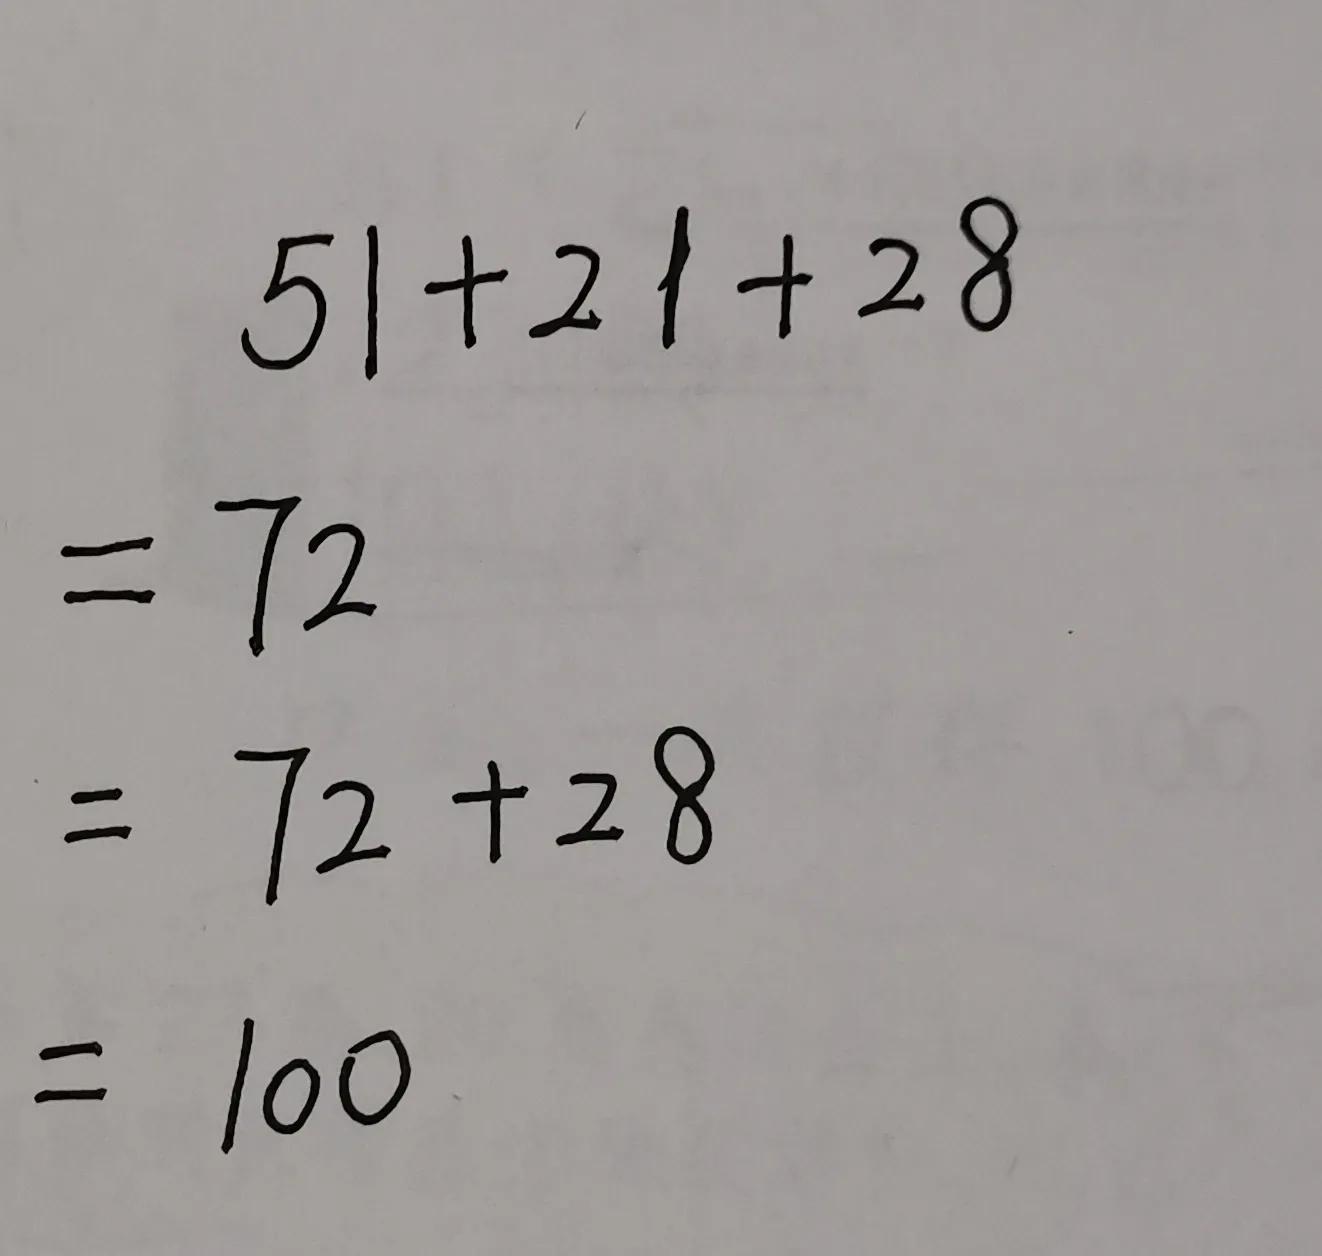 51+21+28
=72
=72+28
=100